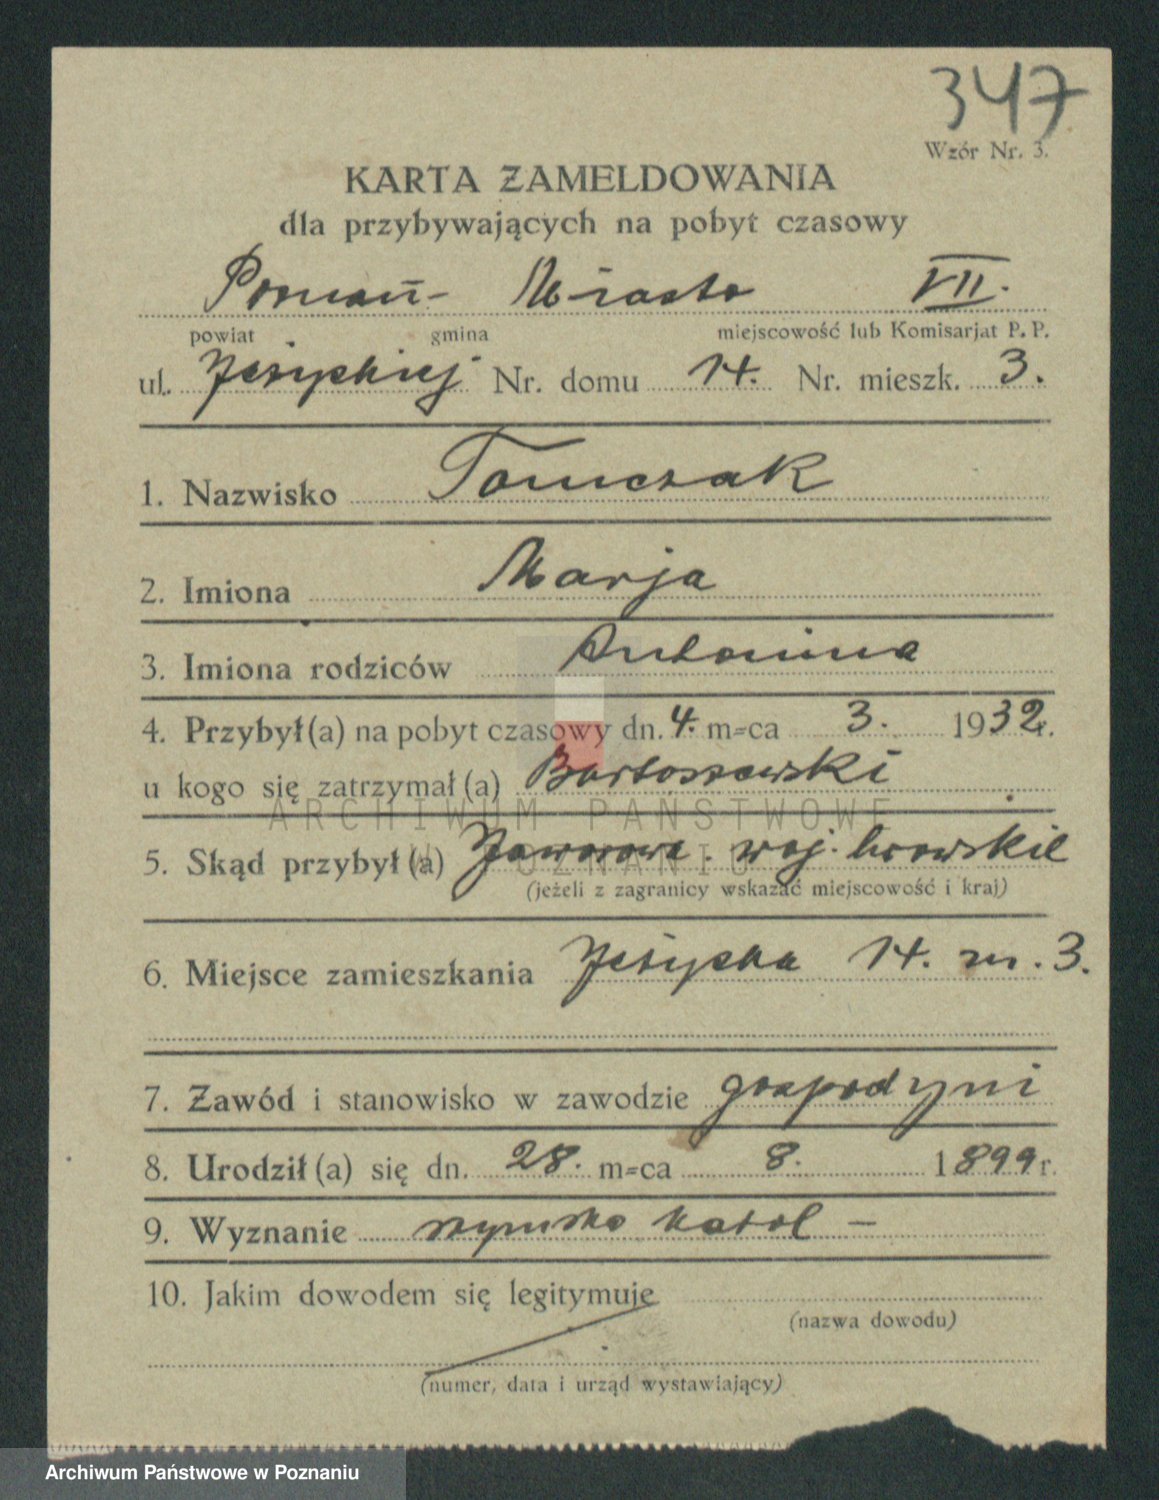 347
Wzór Nr. 3.
KARTA ZAMELDOWANIA
dla przybywających na pobyt czasowy
Poznań- Miasto VII.
powiat gmina miejscowość lub Komisarjat P. P.
ul. Jeżyckiej Nr. domu 14. Nr. mieszk. 3.
1. Nazwisko Tomczak
2. Imiona Marja
3. Imiona rodziców Antonina
4. Przybył(a) na pobyt czasowy dn. 4. m-ca 3. 1932r.
u kogo się zatrzymał(a) Bartoszewski
ARCHIWUM PAŃSTWOWE
W POZNANIU
5. Skąd przybył(a) Jaworowa. woj. lwowskie
(jeżeli z zagranicy wskazać miejscowość i kraj)
6. Miejsce zamieszkania Jeżycka 14. m. 3.
7. Zawód i stanowisko w zawodzie gospodyni
8. Urodził(a) się dn. 28. m-ca 8. 1899r.
9. Wyznanie rzymsko katol –
10. Jakim dowodem się legitymuje
(nazwa dowodu)
(numer, data i urząd wystawiający)
Archiwum Państwowe w Poznaniu